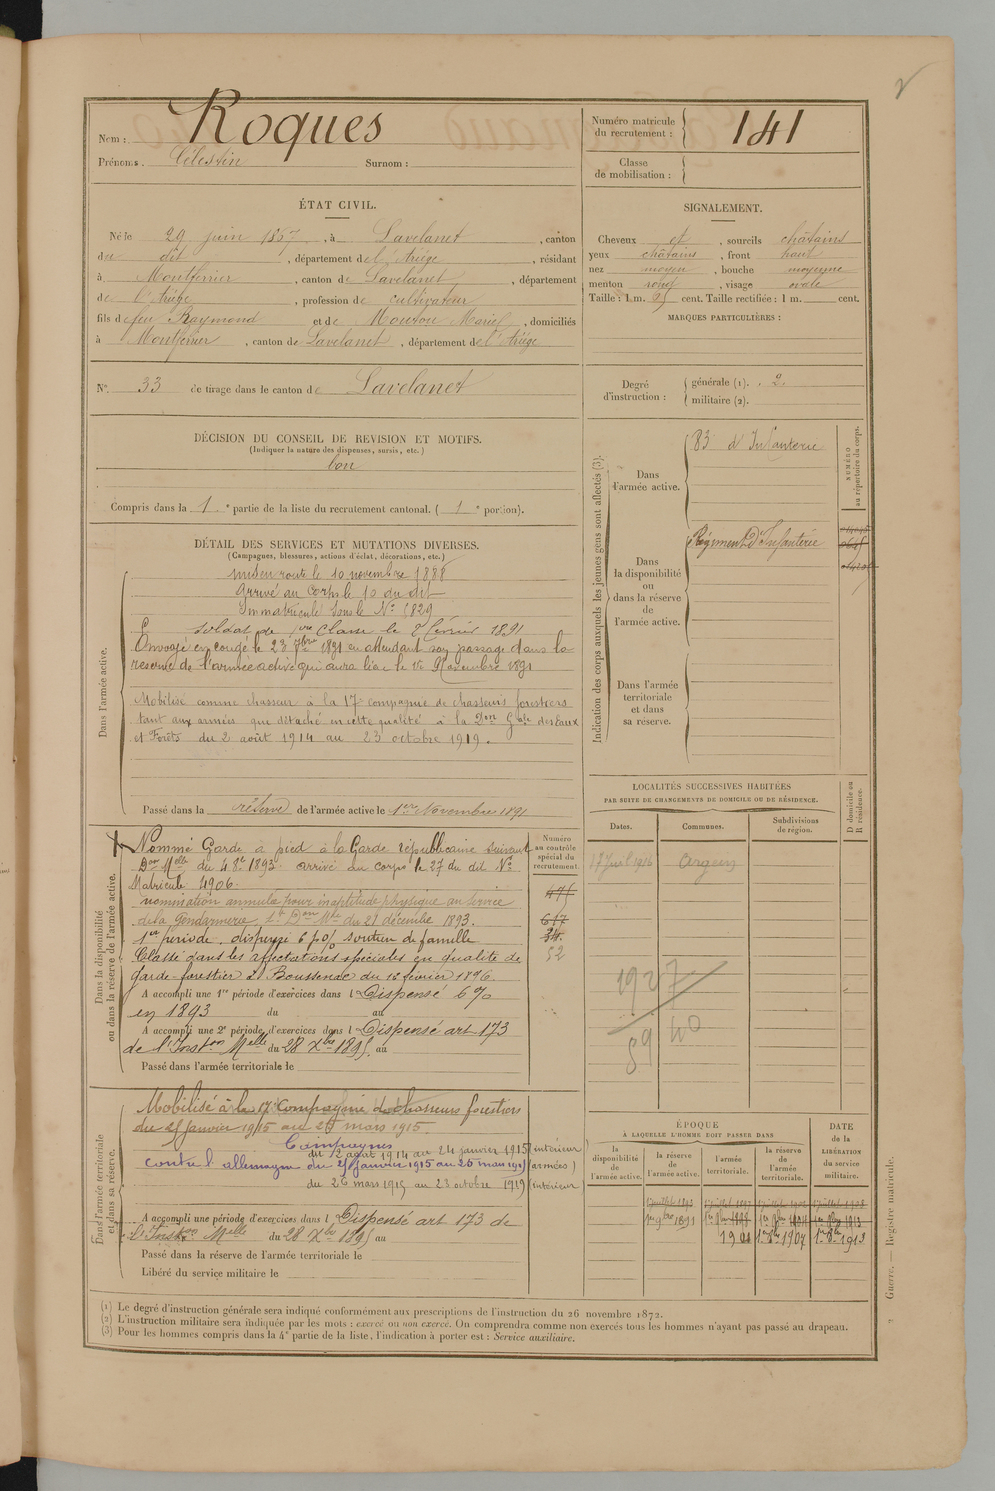 Nom : Roques
Prénoms : Célestin Surnom :
Numéro matricule du recrutement : 141
Classe de mobilisation :
ÉTAT CIVIL.
Né le 29 juin 1867, à Lavelanet, canton
du dit, département de l'Ariège, résidant
à Montferrier, canton de Lavelanet, département
de l'Ariège, profession de cultivateur
fils de feu Raymond et de Mouton Marie, domiciliés
à Montferrier, canton de Lavelanet, département de l'Ariège
N° 33 de tirage dans le canton de Lavelanet
SIGNALEMENT.
Cheveux et, sourcils châtains
yeux châtains, front haut
nez moyen, bouche moyenne
menton rond, visage ovale
Taille : 1 m. cent. Taille rectifiée : 1 m. cent.
MARQUES PARTICULIÈRES :
Degré d'instruction : générale (1). 2.
militaire (2).
DÉCISION DU CONSEIL DE REVISION ET MOTIFS.
(Indiquer la nature des dispenses, sursis, etc.)
bon
Compris dans la 1 e partie de la liste du recrutement cantonal. ( 1 e portion).
DÉTAIL DES SERVICES ET MUTATIONS DIVERSES.
(Campagnes, blessures, actions d'éclat, décorations, etc.)
Dans l'armée active.
mis en route le 10 novembre 1888
Arrivé au corps le 10 du dit
Immatriculé sous le N° 1829
Soldat de 1re classe le 7 février 1891
Envoyé en congé le 23 7bre 1891 en attendant son passage dans la
réserve de l'armée active qui aura lieu le 1er Novembre 1891
Mobilisé comme chasseur à la 17e compagnie de chasseurs forestiers
tant aux armées que détaché en cette qualité à la Don Gale des Eaux
et Forêts du 2 août 1914 au 23 octobre 1919.
Passé dans la réserve de l'armée active le 1er Novembre 1891
Dans la disponibilité ou dans la réserve de l'armée active.
Nommé Garde à pied à la Garde républicaine suivant
Don Melle du 4 8bre 1893 arrivé au corps le 27 du dit N°
Matricule 4906.
nomination annulée pour inaptitude physique au service
de la Gendarmerie, Don Mle du 21 décembre 1893.
1re période dispensé 6 p% soutien de famille
Classé dans les affectations spéciales en qualité de
garde-forestier à Boussenac du 18 février 1896.
A accompli une 1re période d'exercices dans l Dispensé 6 %
en 1893 du au
A accompli une 2e période d'exercices dans l Dispensé art 173
de l'Inston Melle du 28 Xbre 1895 au
Passé dans l'armée territoriale le
Numéro au contrôle spécial du recrutement.
475
617
34.
52
Dans l'armée territoriale et dans sa réserve.
Mobilisé à la 17e compagnie de chasseurs forestiers
du 25 janvier 1915 au 25 mars 1915.
Campagnes
du 12 août 1914 au 24 janvier 1915 (intérieur
contre l'allemagne du 25 janvier 1915 au 25 mars 1915 (armées)
du 26 mars 1915 au 23 octobre 1919 (intérieur
A accompli une période d'exercices dans l Dispensé art 173 de
l'Inston Melle du 28 Xbre 1895 au
Passé dans la réserve de l'armée territoriale le
Libéré du service militaire le
Indication des corps auxquels les jeunes gens sont affectés (3).
Dans l'armée active. 83e d'Infanterie
Dans la disponibilité ou dans la réserve de l'armée active. Régiment d'Infanterie
Dans l'armée territoriale et dans sa réserve.
NUMÉRO au répertoire du corps.
LOCALITÉS SUCCESSIVES HABITÉES
PAR SUITE DE CHANGEMENTS DE DOMICILE OU DE RÉSIDENCE.
Dates. Communes. Subdivisions de région. D domicile ou R résidence.
1916 Argein
1927
59 40
ÉPOQUE
À LAQUELLE L'HOMME DOIT PASSER DANS
la disponibilité de l'armée active. la réserve de l'armée active. l'armée territoriale. la réserve de l'armée territoriale. DATE de la LIBÉRATION du service militaire.
1901 1er 8bre 1907 1er 8bre 1913
(1) Le degré d'instruction générale sera indiqué conformément aux prescriptions de l'instruction du 26 novembre 1872.
(2) L'instruction militaire sera indiquée par les mots : exercé ou non exercé. On comprendra comme non exercés tous les hommes n'ayant pas passé au drapeau.
(3) Pour les hommes compris dans la 4e partie de la liste, l'indication à porter est : Service auxiliaire.
Guerre. — Registre matricule.